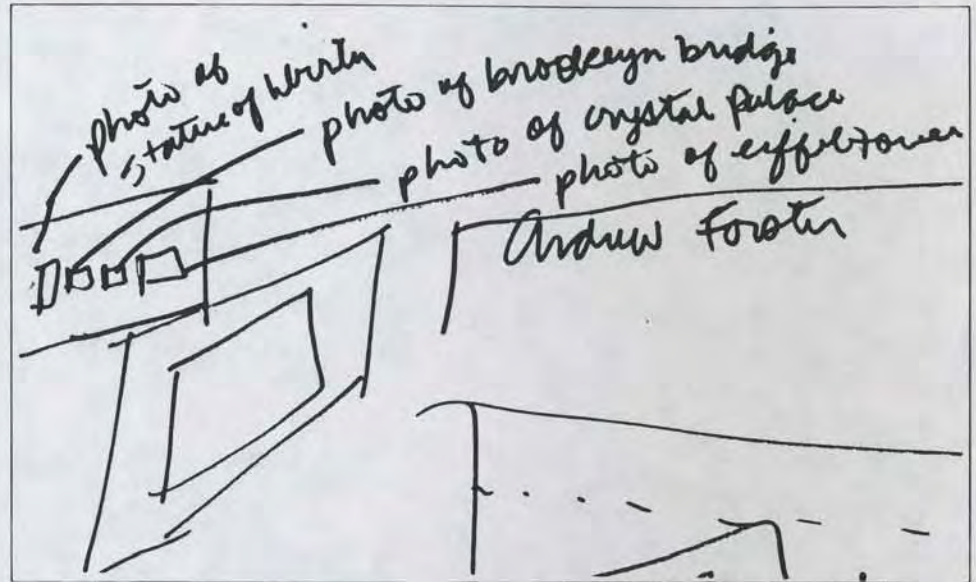 photo of
statue of liberty
photo of brooklyn bridge
photo of crystal palace
photo of eiffel tower
Andrew Forster